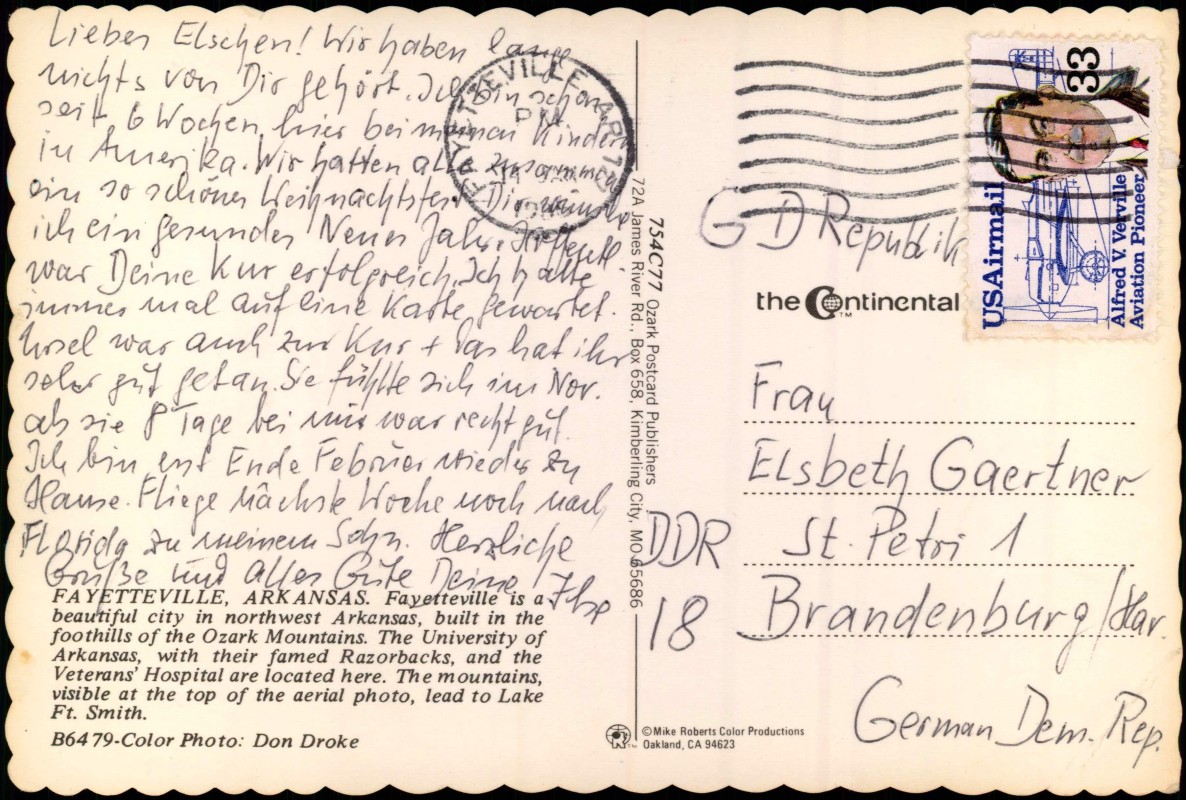 Lieber Elschen! Wir haben lange
nichts von Dir gehört. Ich bin schon
seit 6 Wochen hier bei meinen Kindern
in Amerika. Wir hatten alle zusammen
ein so schönes Weihnachtsfest. Dir wünsche
ich ein gesundes Neues Jahr. Hoffentl.
war Deine Kur erfolgreich. Ich hatte
immer mal auf eine Karte gewartet.
Ursel war auch zur Kur + das hat ihr
sehr gut getan. Sie fühlte sich im Nov.
als sie 8 Tage bei mir war recht gut.
Ich bin erst Ende Februar wieder zu
Hause. Fliege nächste Woche noch nach
Florida zu meinem Sohn. Herzliche
Grüße und alles Gute Deine Ilse
FAYETTEVILLE, ARKANSAS. Fayetteville is a
beautiful city in northwest Arkansas, built in the
foothills of the Ozark Mountains. The University of
Arkansas, with their famed Razorbacks, and the
Veterans' Hospital are located here. The mountains,
visible at the top of the aerial photo, lead to Lake
Ft. Smith.
B6479-Color Photo: Don Droke
FAYETTEVILLE AR
PM
754C77 Ozark Postcard Publishers
72A James River Rd., Box 658, Kimberling City, MO 65686
©Mike Roberts Color Productions
Oakland, CA 94623
the Continental™
33
USAirmail
Alfred V. Verville
Aviation Pioneer
G D Republik
Frau
Elsbeth Gaertner
DDR St. Petri 1
18 Brandenburg/Hav.
German Dem. Rep.